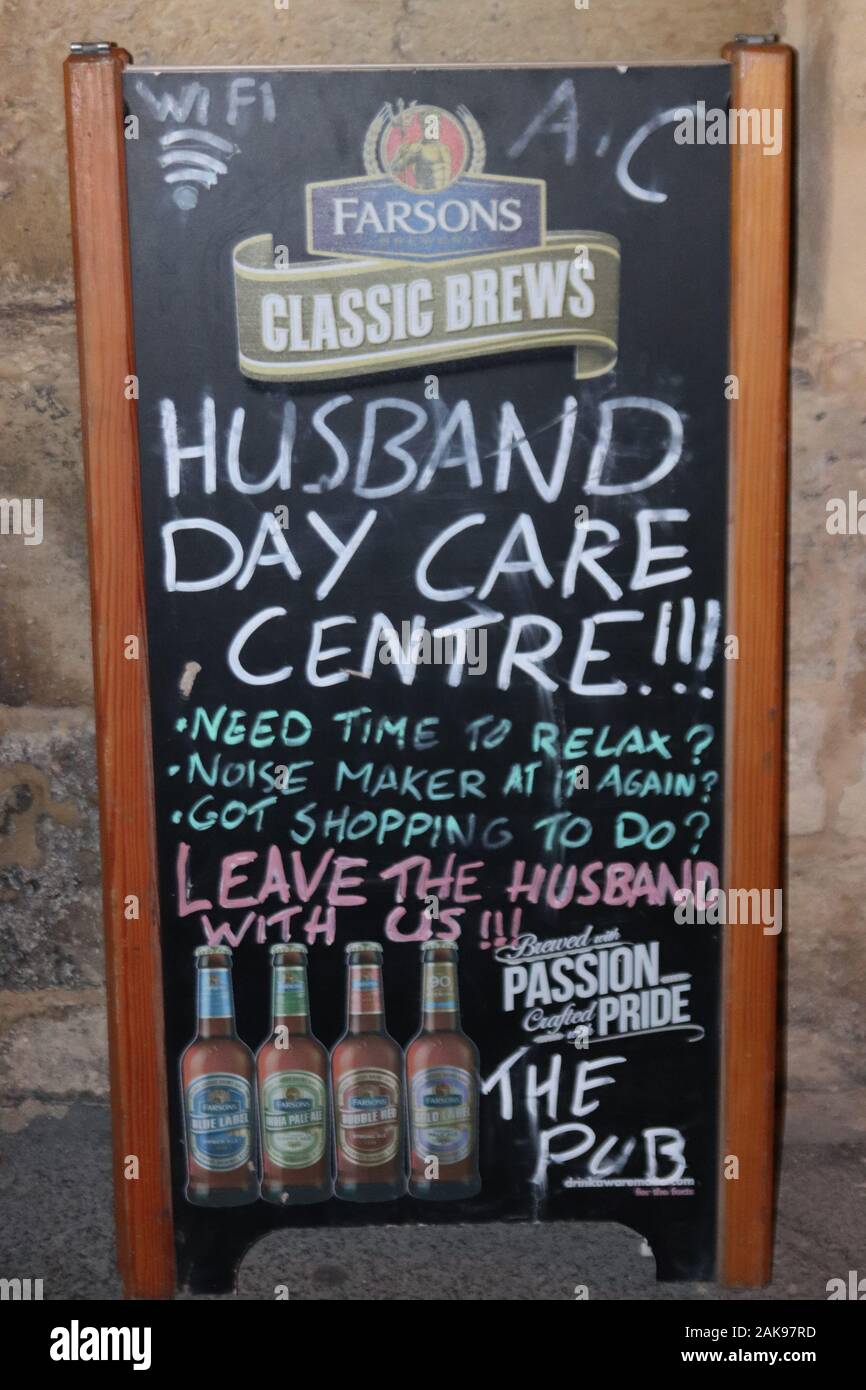 WIFI A.C
FARSONS
BREWERY
CLASSIC BREWS
HUSBAND
DAY CARE
CENTRE!!!
• NEED TIME TO RELAX?
• NOISE MAKER AT IT AGAIN?
• GOT SHOPPING TO DO?
LEAVE THE HUSBAND
WITH US!!!
Brewed with
PASSION
Crafted with
PRIDE
90
FARSONS FARSONS FARSONS FARSONS
BLUE LABEL INDIA PALE ALE DOUBLE RED GOLD LABEL
THE
PUB
for the facts
alamy
Image ID: 2AK97RD
www.alamy.com